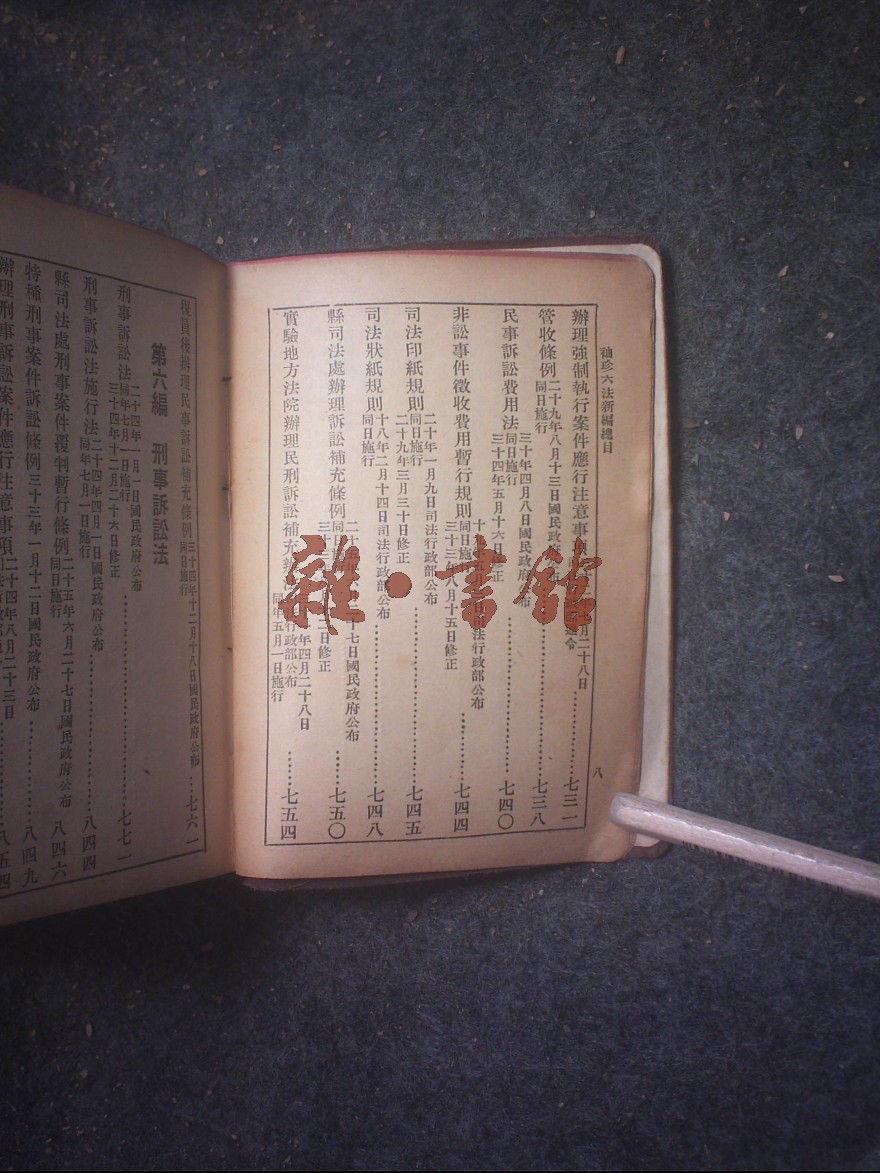 袖珍六法新編總目
八
辦理強制執行案件應行注意事
二年七月二十八日
令
七三一
管收條例
二十九年八月十三日國民政府
布
同日施行
七三八
民事訴訟費用法
三十年四月八日國民政府
布
同日施行
三十四年五月十六日
正
七四〇
非訟事件徵收費用暫行規則
司法行政部公布
同日施
三十三年八月十五日修正
七四四
司法印紙規則
二十年一月九日司法行政部公布
同日施行
二十九年三月三十日修正
七四五
司法狀紙規則
十八年二月十四日司法行政部公布
同日施行
七四八
縣司法處辦理訴訟補充條例
二十五年
十七日國民政府公布
同日施行
三十三
二日修正
七五〇
實驗地方法院辦理民刑訴訟補充辦
年四月二十八日
行政部公布
同年五月一日施行
七五四
復員後辦理民事訴訟補充條例
三十四年十二月十八日國民政府公布
同日施行
七六一
第六編 刑事訴訟法
刑事訴訟法
二十四年一月一日國民政府公布
同年七月一日施行
三十四年十二月二十六日修正
七七一
刑事訴訟法施行法
二十四年四月一日國民政府公布
同年七月一日施行
八四四
縣司法處刑事案件覆判暫行條例
二十五年六月二十七日國民政府公布
同日施行
八四六
特種刑事案件訴訟條例
三十三年一月十二日國民政府公布
八四九
辦理刑事訴訟案件應行注意事項
二十四年八月二十三日
八五四
雜·書館